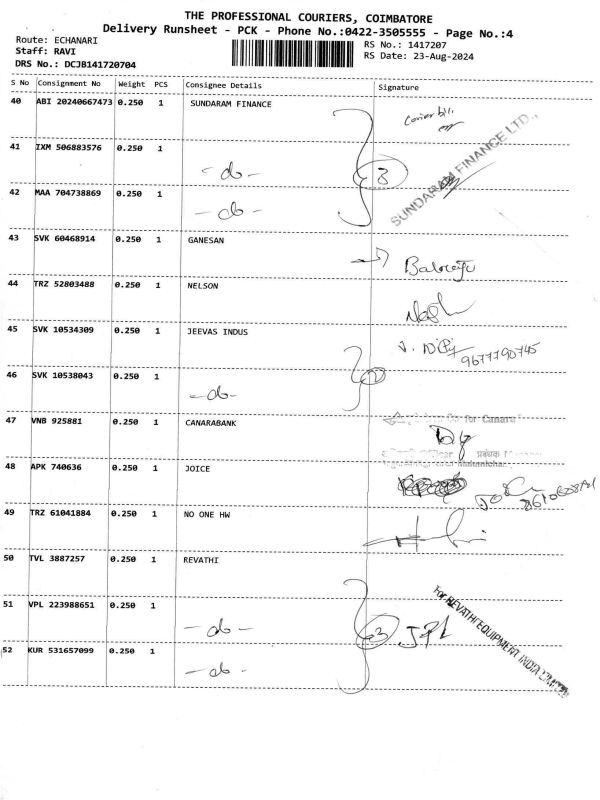 THE PROFESSIONAL COURIERS, COIMBATORE
Delivery Runsheet - PCK - Phone No.:0422-3505555 - Page No.:4
Route: ECHANARI
Staff: RAVI
DRS No.: DCJB141720704
RS No.: 1417207
RS Date: 23-Aug-2024
S No Consignment No Weight PCS Consignee Details Signature
40 ABI 20240667473 0.250 1 SUNDARAM FINANCE
SUNDARAM FINANCE LTD.,
41 IXM 506883576 0.250 1 -do- 3
42 MAA 704738869 0.250 1 -do-
43 SVK 60468914 0.250 1 GANESAN
44 TRZ 52803488 0.250 1 NELSON
45 SVK 10534309 0.250 1 JEEVAS INDUS
9677790745
46 SVK 10538043 0.250 1 -do- 2
47 VNB 925881 0.250 1 CANARABANK
for Canara
प्रबंधक
48 APK 740636 0.250 1 JOICE
49 TRZ 61041884 0.250 1 NO ONE HW
50 TVL 3887257 0.250 1 REVATHI
For REVATHI EQUIPMENT INDIA LIMITED
51 VPL 223988651 0.250 1 -do- 3
52 KUR 531657099 0.250 1 -do-